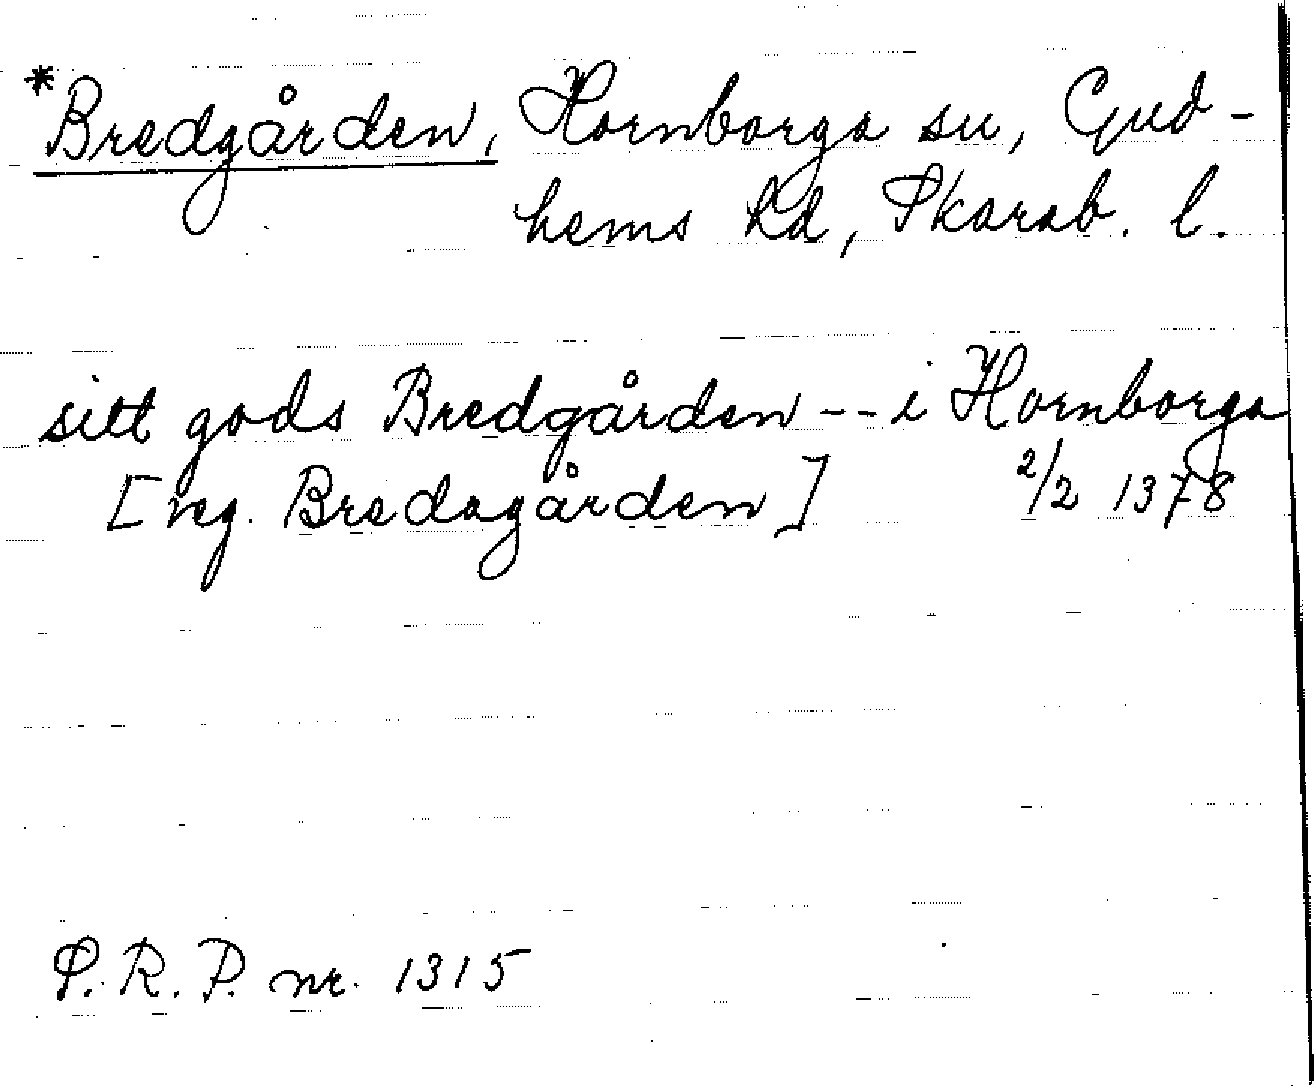 *Bredgården, Hornborga sn, Gud-
hems hd, Skarab. l.
sitt gods Bredgården -- i Hornborga
[reg. Bredagården] 2/2 1378
S.R.P. nr. 1315